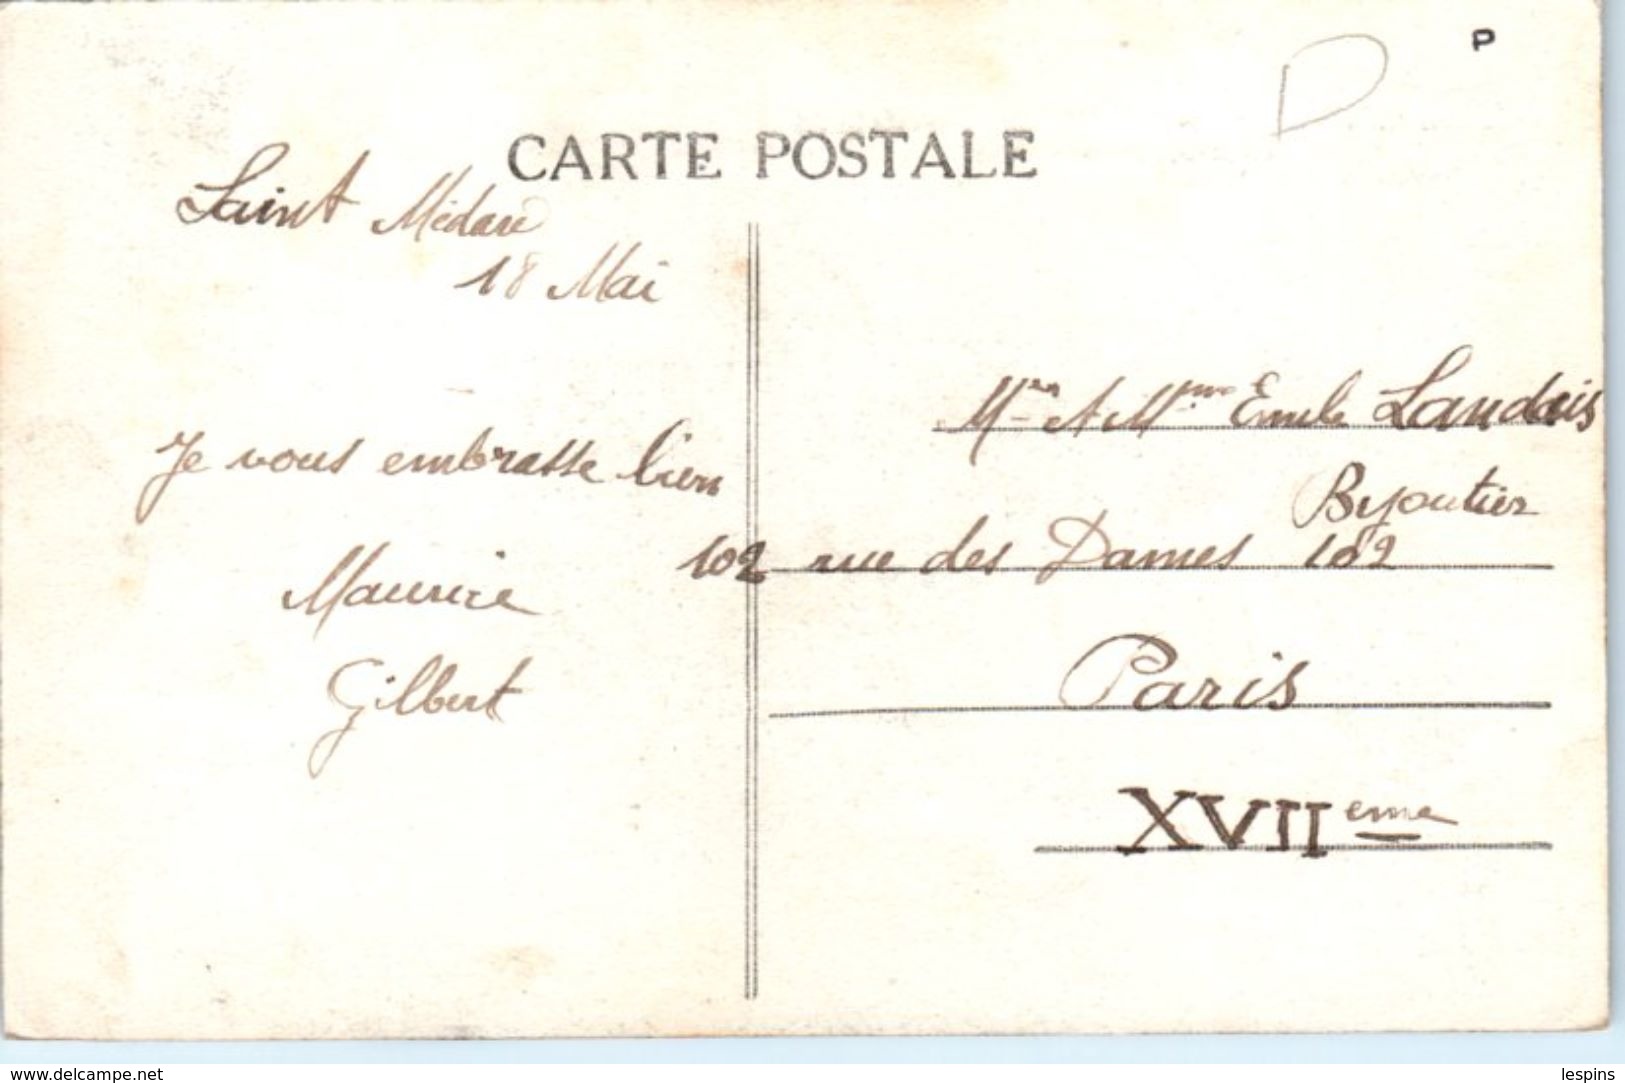 P
D
CARTE POSTALE
Saint Médard
18 Mai
Je vous embrasse bien
Maurice
Gilbert
et Mme Emile Landais
Bijoutier
102 rue des Dames 102
Paris
XVIIeme
www.delcampe.net
lespins